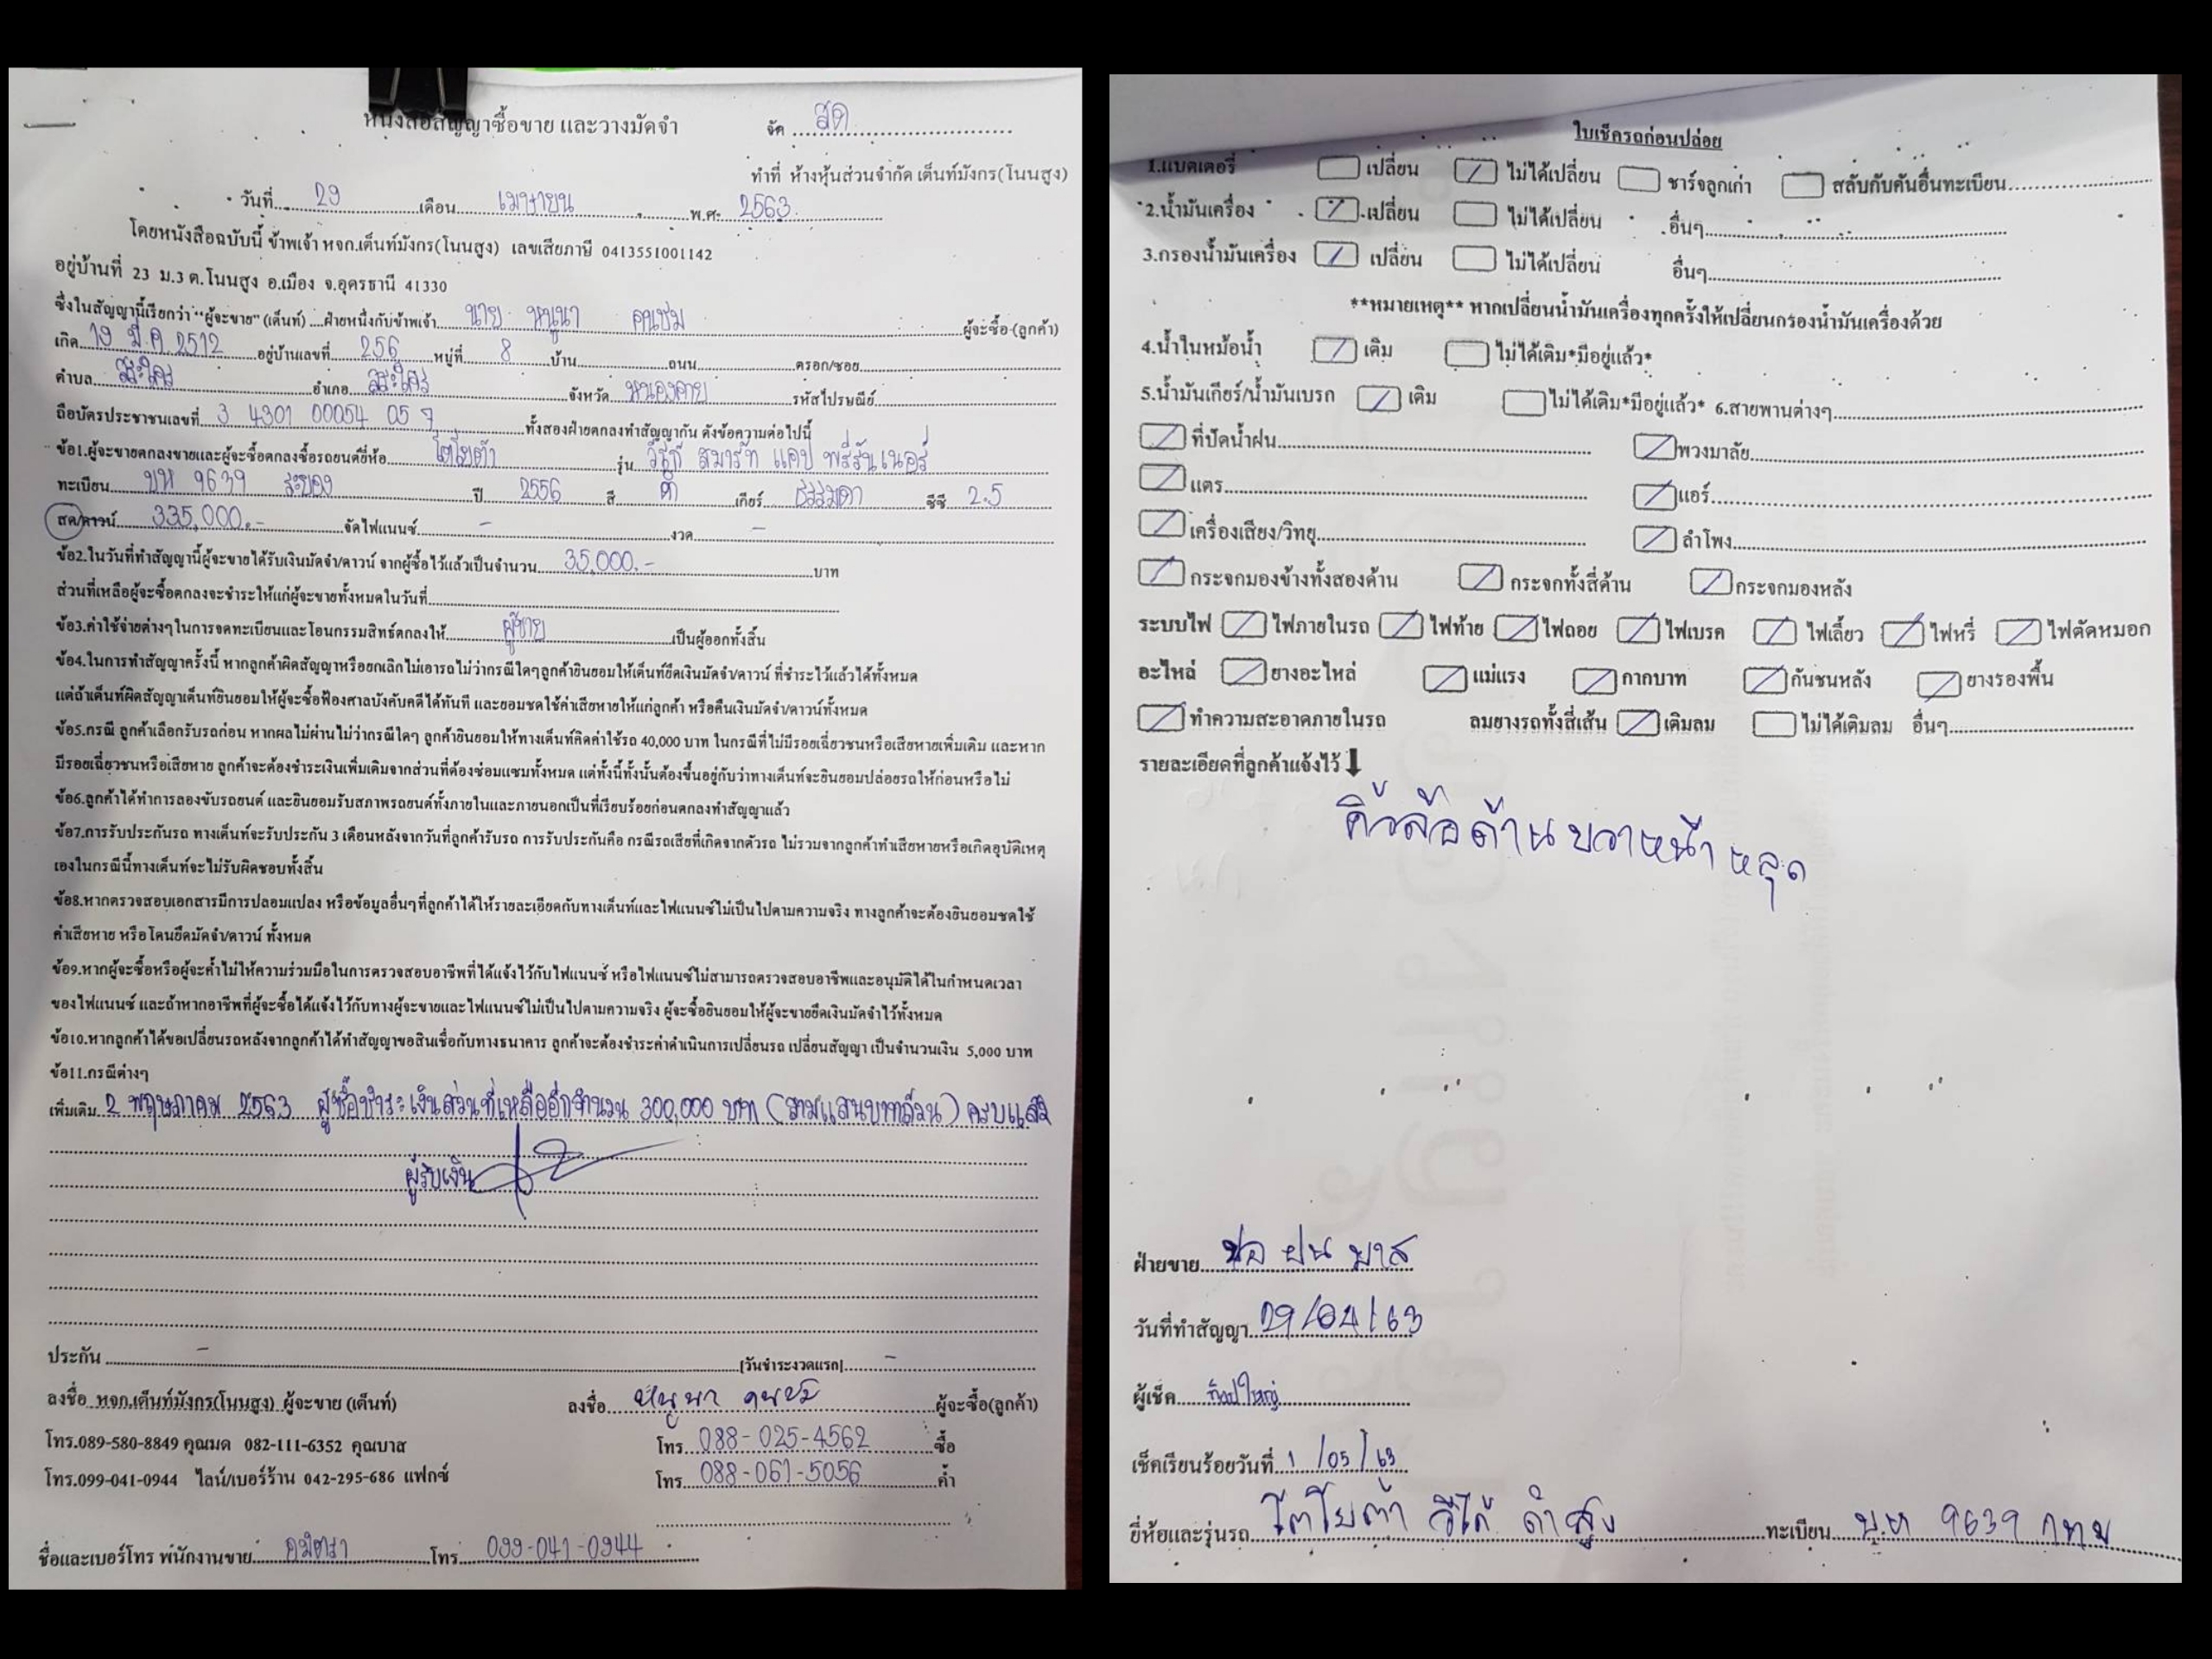 หนังสือสัญญาซื้อขาย และวางมัดจำ
จัด สด
ทำที่ ห้างหุ้นส่วนจำกัด เต็นท์มังกร(โนนสูง)
วันที่ 29 เดือน เมษายน พ.ศ. 2563
โดยหนังสือฉบับนี้ ข้าพเจ้า หจก.เต็นท์มังกร(โนนสูง) เลขเสียภาษี 0413551001142
อยู่บ้านที่ 23 ม.3 ต.โนนสูง อ.เมือง จ.อุดรธานี 41330
ซึ่งในสัญญานี้เรียกว่า "ผู้จะขาย" (เต็นท์) ....ฝ่ายหนึ่งกับข้าพเจ้า นาย หนูนา คนขัม ผู้จะซื้อ (ลูกค้า)
เกิด มี.ค 2512 อยู่บ้านเลขที่ 256 หมู่ที่ 8 บ้าน ถนน ตรอก/ซอย
ตำบล สระใคร อำเภอ สระใคร จังหวัด หนองคาย รหัสไปรษณีย์
ถือบัตรประชาชนเลขที่ 3 4301 00054 05 7 ทั้งสองฝ่ายตกลงทำสัญญากัน ดังข้อความต่อไปนี้
ข้อ1.ผู้จะขายตกลงขายและผู้จะซื้อตกลงซื้อรถยนต์ยี่ห้อ โตโยต้า รุ่น วีโก้ สมาร์ท แคป พรีรันเนอร์
ทะเบียน บห 9639 ระยอง ปี 2556 สี ดำ เกียร์ ธรรมดา ซีซี 2.5
สด/ดาวน์ 335,000.- จัดไฟแนนซ์ - งวด -
ข้อ2.ในวันที่ทำสัญญานี้ผู้จะขายได้รับเงินมัดจำ/ดาวน์ จากผู้ซื้อไว้แล้วเป็นจำนวน 35,000.- บาท
ส่วนที่เหลือผู้จะซื้อตกลงจะชำระให้แก่ผู้จะขายทั้งหมดในวันที่
ข้อ3.ค่าใช้จ่ายต่างๆในการจดทะเบียนและโอนกรรมสิทธ์ตกลงให้ ผู้ขาย เป็นผู้ออกทั้งสิ้น
ข้อ4.ในการทำสัญญาครั้งนี้ หากลูกค้าผิดสัญญาหรือยกเลิกไม่เอารถไม่ว่ากรณีใดๆลูกค้ายินยอมให้เต็นท์ยึดเงินมัดจำ/ดาวน์ ที่ชำระไว้แล้วได้ทั้งหมด
แต่ถ้าเต็นท์ผิดสัญญาเต็นท์ยินยอมให้ผู้จะซื้อฟ้องศาลบังคับคดีได้ทันที และยอมชดใช้ค่าเสียหายให้แก่ลูกค้า หรือคืนเงินมัดจำ/ดาวน์ทั้งหมด
ข้อ5.กรณี ลูกค้าเลือกรับรถก่อน หากผลไม่ผ่านไม่ว่ากรณีใดๆ ลูกค้ายินยอมให้ทางเต็นท์คิดค่าใช้รถ 40,000 บาท ในกรณีที่ไม่มีรอยเฉี่ยวชนหรือเสียหายเพิ่มเติม และหาก
มีรอยเฉี่ยวชนหรือเสียหาย ลูกค้าจะต้องชำระเงินเพิ่มเติมจากส่วนที่ต้องซ่อมแซมทั้งหมด แต่ทั้งนี้ทั้งนั้นต้องขึ้นอยู่กับว่าทางเต็นท์จะยินยอมปล่อยรถให้ก่อนหรือไม่
ข้อ6.ลูกค้าได้ทำการลองขับรถยนต์ และยินยอมรับสภาพรถยนต์ทั้งภายในและภายนอกเป็นที่เรียบร้อยก่อนตกลงทำสัญญาแล้ว
ข้อ7.การรับประกันรถ ทางเต็นท์จะรับประกัน 3 เดือนหลังจากวันที่ลูกค้ารับรถ การรับประกันคือ กรณีรถเสียที่เกิดจากตัวรถ ไม่รวมจากลูกค้าทำเสียหายหรือเกิดอุบัติเหตุ
เองในกรณีนี้ทางเต็นท์จะไม่รับผิดชอบทั้งสิ้น
ข้อ8.หากตรวจสอบเอกสารมีการปลอมแปลง หรือข้อมูลอื่นๆที่ลูกค้าได้ให้รายละเอียดกับทางเต็นท์และไฟแนนซ์ไม่เป็นไปตามความจริง ทางลูกค้าจะต้องยินยอมชดใช้
ค่าเสียหาย หรือโดนยึดมัดจำ/ดาวน์ ทั้งหมด
ข้อ9.หากผู้จะซื้อหรือผู้จะค้ำไม่ให้ความร่วมมือในการตรวจสอบอาชีพที่ได้แจ้งไว้กับไฟแนนซ์ หรือไฟแนนซ์ไม่สามารถตรวจสอบอาชีพและอนุมัติได้ในกำหนดเวลา
ของไฟแนนซ์ และถ้าหากอาชีพที่ผู้จะซื้อได้แจ้งไว้กับทางผู้จะขายและไฟแนนซ์ไม่เป็นไปตามความจริง ผู้จะซื้อยินยอมให้ผู้จะขายยึดเงินมัดจำไว้ทั้งหมด
ข้อ10.หากลูกค้าได้ขอเปลี่ยนรถหลังจากลูกค้าได้ทำสัญญาขอสินเชื่อกับทางธนาคาร ลูกค้าจะต้องชำระค่าดำเนินการเปลี่ยนรถ เปลี่ยนสัญญา เป็นจำนวนเงิน 5,000 บาท
ข้อ11.กรณีต่างๆ
เพิ่มเติม 2 พฤษภาคม 2563 ผู้ซื้อชำระเงินส่วนที่เหลืออีกจำนวน 300,000 บาท (สามแสนบาทถ้วน) ครบแล้ว
ผู้รับเงิน
ประกัน - [วันชำระงวดแรก] -
ลงชื่อ หจก.เต็นท์มังกร(โนนสูง) ผู้จะขาย (เต็นท์) ลงชื่อ หนูนา คนขัม ผู้จะซื้อ(ลูกค้า)
โทร.089-580-8849 คุณมด 082-111-6352 คุณบาส โทร 088-025-4562 ซื้อ
โทร.099-041-0944 ไลน์/เบอร์ร้าน 042-295-686 แฟกซ์ โทร 088-061-5056 ค้ำ
ชื่อและเบอร์โทร พนักงานขาย โทร 099-041-0944
ใบเช็ครถก่อนปล่อย
1.แบตเตอรี่ เปลี่ยน ไม่ได้เปลี่ยน ชาร์จลูกเก่า สลับกับคันอื่นทะเบียน
2.น้ำมันเครื่อง เปลี่ยน ไม่ได้เปลี่ยน อื่นๆ
3.กรองน้ำมันเครื่อง เปลี่ยน ไม่ได้เปลี่ยน อื่นๆ
**หมายเหตุ** หากเปลี่ยนน้ำมันเครื่องทุกครั้งให้เปลี่ยนกรองน้ำมันเครื่องด้วย
4.น้ำในหม้อน้ำ เติม ไม่ได้เติม*มีอยู่แล้ว*
5.น้ำมันเกียร์/น้ำมันเบรก เติม ไม่ได้เติม*มีอยู่แล้ว* 6.สายพานต่างๆ
ที่ปัดน้ำฝน พวงมาลัย
แตร แอร์
เครื่องเสียง/วิทยุ ลำโพง
กระจกมองข้างทั้งสองด้าน กระจกทั้งสี่ด้าน กระจกมองหลัง
ระบบไฟ ไฟภายในรถ ไฟท้าย ไฟถอย ไฟเบรค ไฟเลี้ยว ไฟหรี่ ไฟตัดหมอก
อะไหล่ ยางอะไหล่ แม่แรง กากบาท กันชนหลัง ยางรองพื้น
ทำความสะอาดภายในรถ ลมยางรถทั้งสี่เส้น เติมลม ไม่ได้เติมลม อื่นๆ
รายละเอียดที่ลูกค้าแจ้งไว้
คิ้วล้อด้านขวาหน้า หลุด
ฝ่ายขาย
วันที่ทำสัญญา 29/04/63
ผู้เช็ค
เช็คเรียบร้อยวันที่ 1/05/63
ยี่ห้อและรุ่นรถ โตโยต้า วีโก้ ดำสูง ทะเบียน บ.ห 9639 กทม